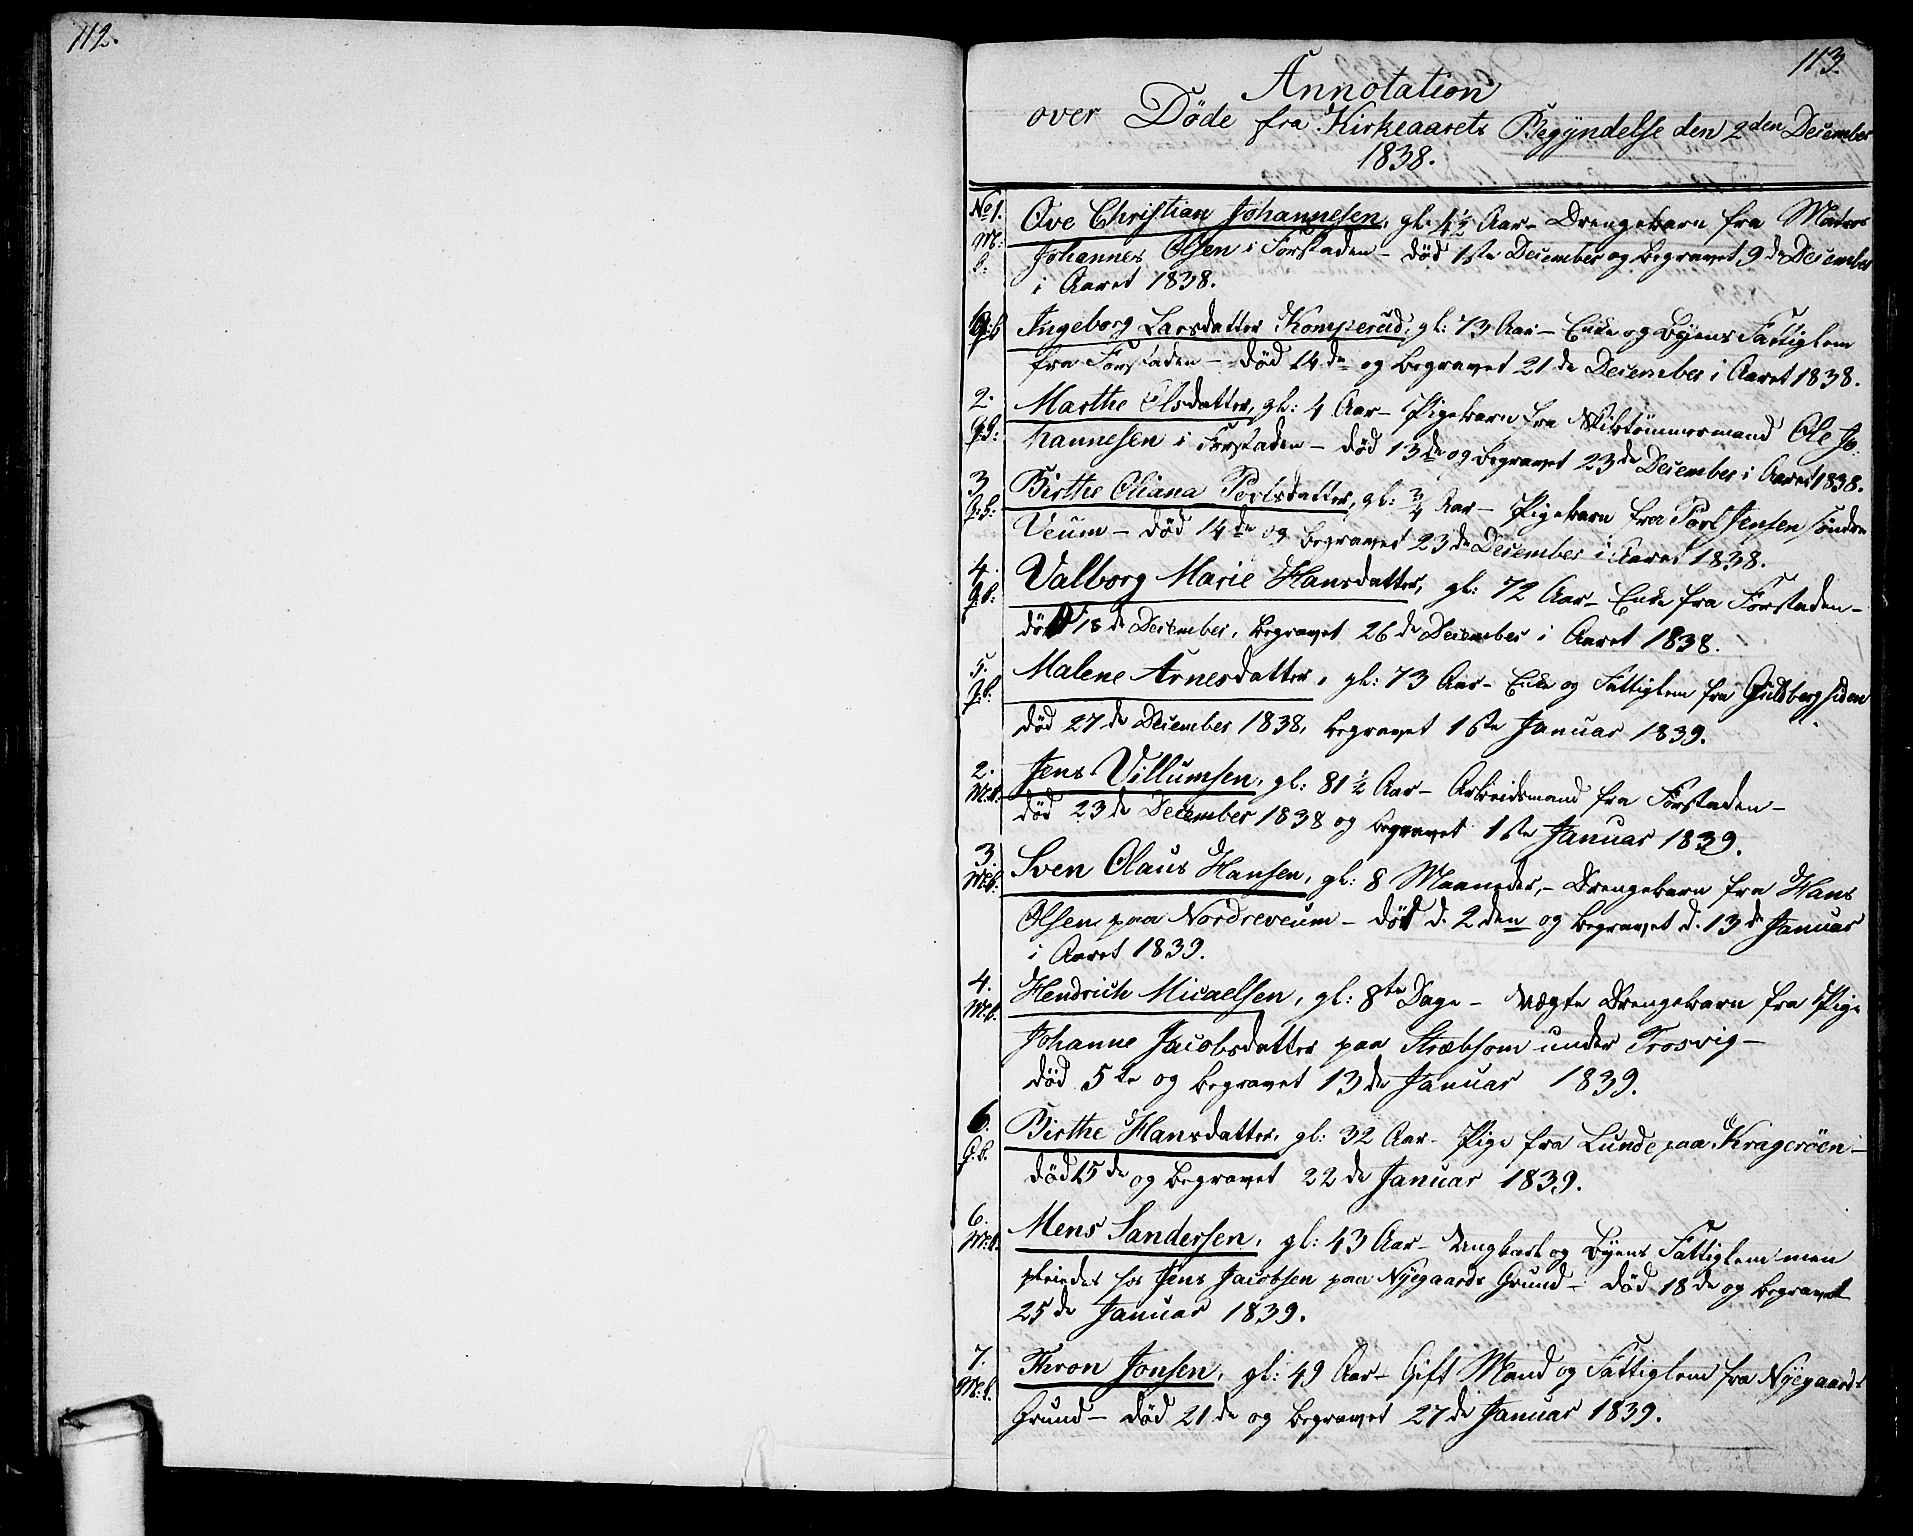 112.
113.
Annotation
over Döde fra Kirkeaarets Begyndelse den 2den December
1838.
No 1. Ove Christian Johannesen, gl. 4½ Aar - Drengebarn fra Matros
M: Johannes Olsen i Forstaden - død 1ste December og begravet 9de December
b: i Aaret 1838.
Q:b Ingeborg Larsdatter Komperud, gl: 73 Aar - Enke og Byens Fattiglem
fra Forstaden - død 14de og begravet 21de December i Aaret 1838.
2. Marthe Olsdatter, gl: 4 Aar - Pigebarn fra Skibtömmermand Ole Jo-
Q:b: hannesen i Forstaden - død 13de og begravet 23de December i Aaret 1838.
3. Birthe Oliana Poelsdatter, gl: ¾ Aar - Pigebarn fra Poel Jensen Søndre
Q:b: Veum - død 14de og begravet 23de December i Aaret 1838.
4. Valborg Marie Hansdatter, gl: 72 Aar - Enke fra Forstaden -
Q:b: død 18de December, begravet 26de December i Aaret 1838.
5. Malene Arnesdatter, gl: 73 Aar - Enke og Fattiglem fra Guldbergsiden
Q:b. død 27de December 1838, begravet 1ste Januar 1839.
2. Jens Villumsen, gl: 81½ Aar - Arbeidsmand fra Forstaden -
M:b. død 23de December 1838 og begravet 1ste Januar 1839.
3. Sven Olaus Hansen, gl: 8 Maaneder, - Drengebarn fra Hans
M:b: Olsen paa Nordreveum - død d. 2den og begravet d. 13de Januar
i Aaret 1839.
4. Hendrich Micaelsen, gl: 8te Dage - uægte Drengebarn fra Pige
M:b. Johanne Jacobsdatter paa Stræbsom under Trosvig -
død 5te og begravet 13de Januar 1839.
6. Birthe Hansdatter, gl: 32 Aar - Pige fra Lunde paa Kragerøen -
Q.b. død 15de og begravet 22de Januar 1839.
6. Mens Sandersen, gl: 43 Aar - Ungkarl og Byens Fattiglem men
M:b. pleiedes hos Jens Jacobsen paa Nyegaards Grund - død 18de og begravet
25de Januar 1839.
7. Theron Jonsen, gl: 49 Aar - Gift Mand og Fattiglem fra Nyegaards
M:b. Grund - død 21de og begravet 27de Januar 1839.